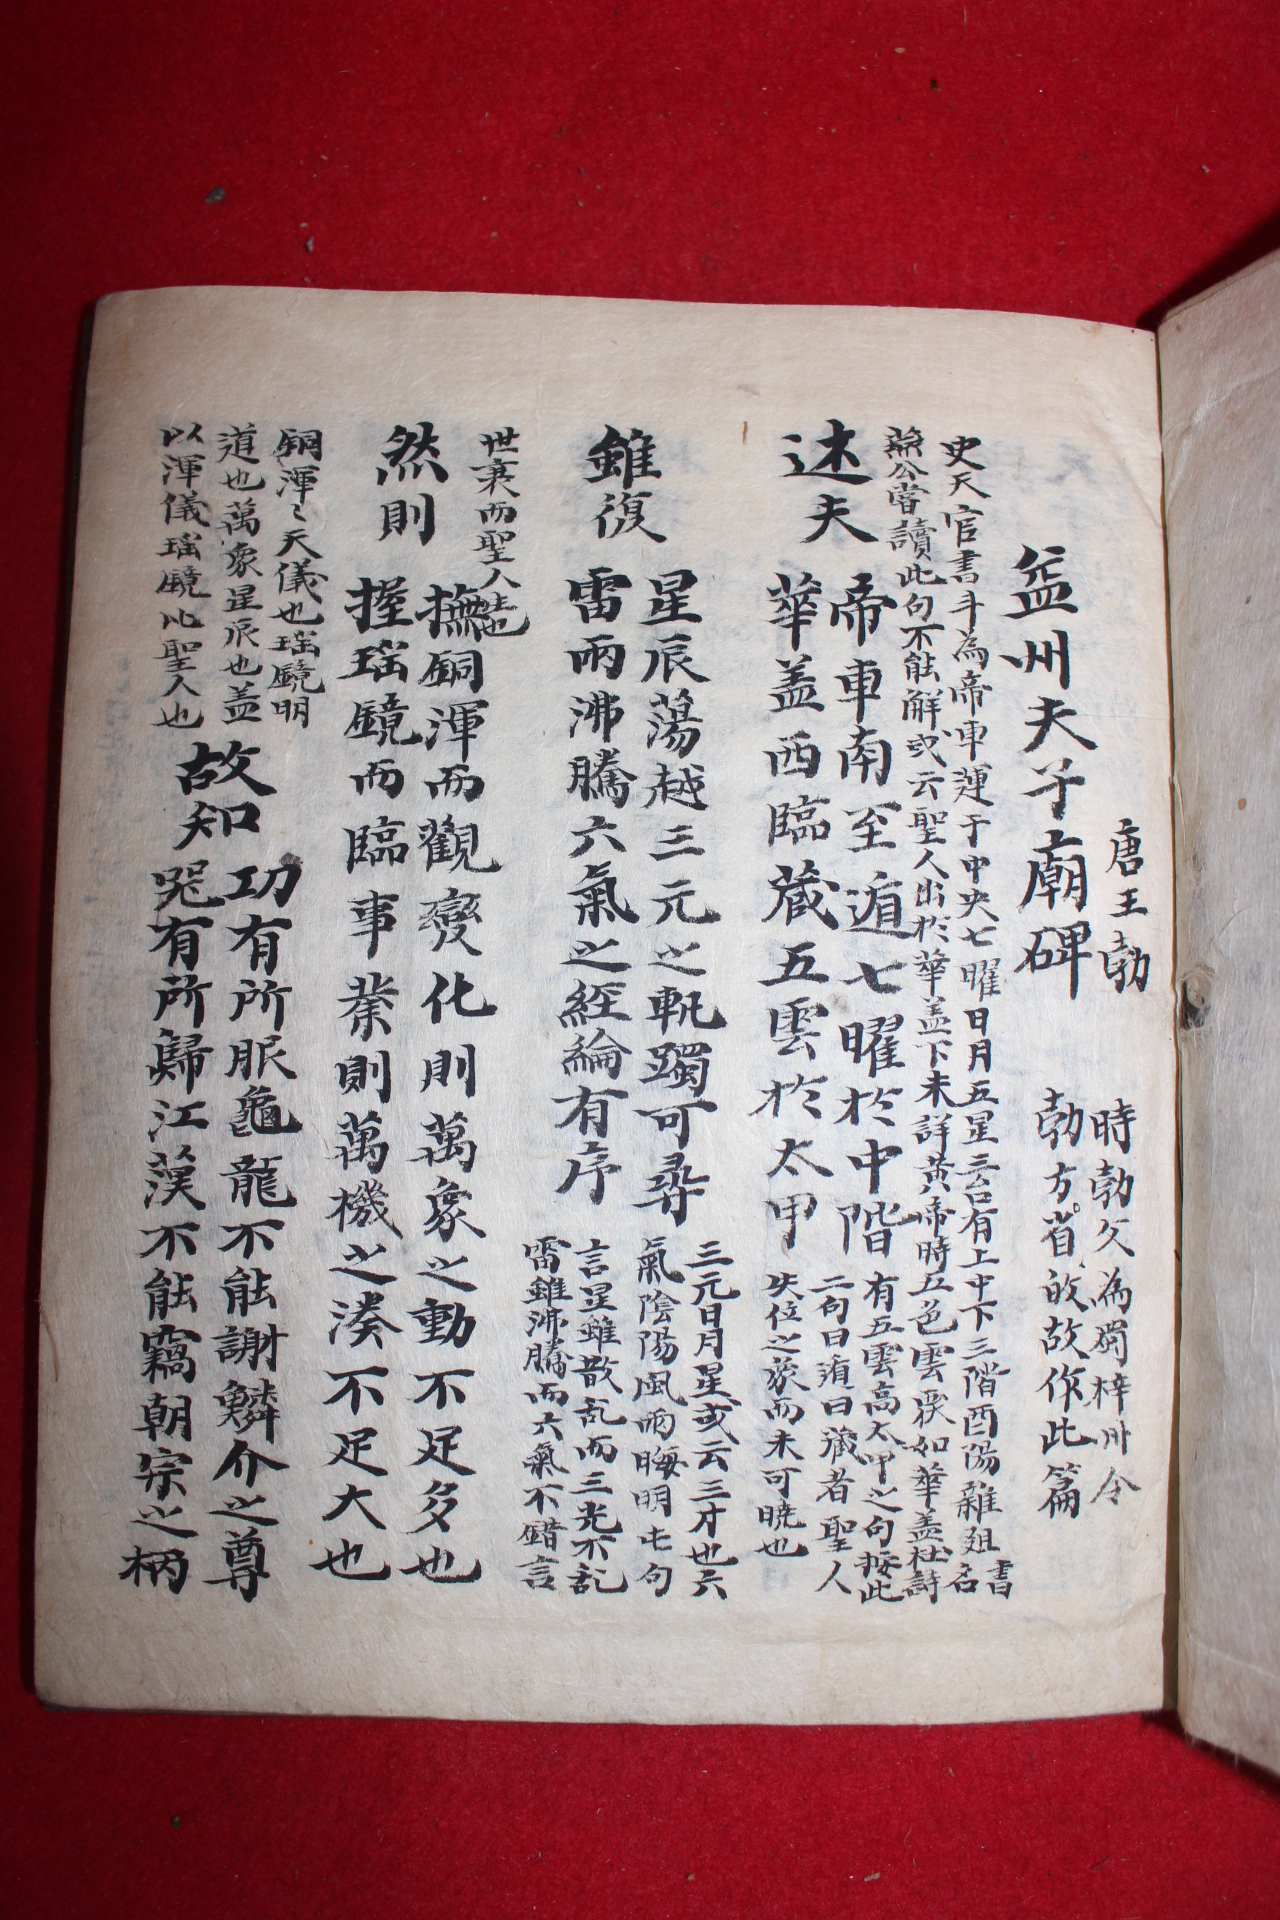 唐王勃
時勃父為蜀梓州令
益州夫子廟碑
勃方省故作此篇
史天官書斗為帝車運于中央七曜日月五星三台有上中下三階酉陽雜俎書名
燕公嘗讀此句不能解或云聖人出於華盖下未詳黃帝時五色雲戾如華盖杜詩
述夫
帝車南至遁七曜於中階
華盖西臨藏五雲於太甲
有五雲高太甲之句按此
二句曰遁曰藏者聖人
失位之象而未可曉也
雖復
星辰蕩越三元之軌躅可尋
雷雨沸騰六氣之經綸有序
三元日月星或云三才也六
氣陰陽風雨晦明屯句
言星雖散乱而三光不乱
雷雖沸騰而六氣不錯言
世衰而聖人也
然則
撫銅渾而觀變化則萬象之動不足多也
握瑤鏡而臨事業則萬機之湊不足大也
銅渾〻天儀也瑤鏡明
道也萬象星辰也盖
以渾儀瑤鏡比聖人也
故知
功有所服龜龍不能謝鱗介之尊
器有所歸江漢不能竊朝宗之柄